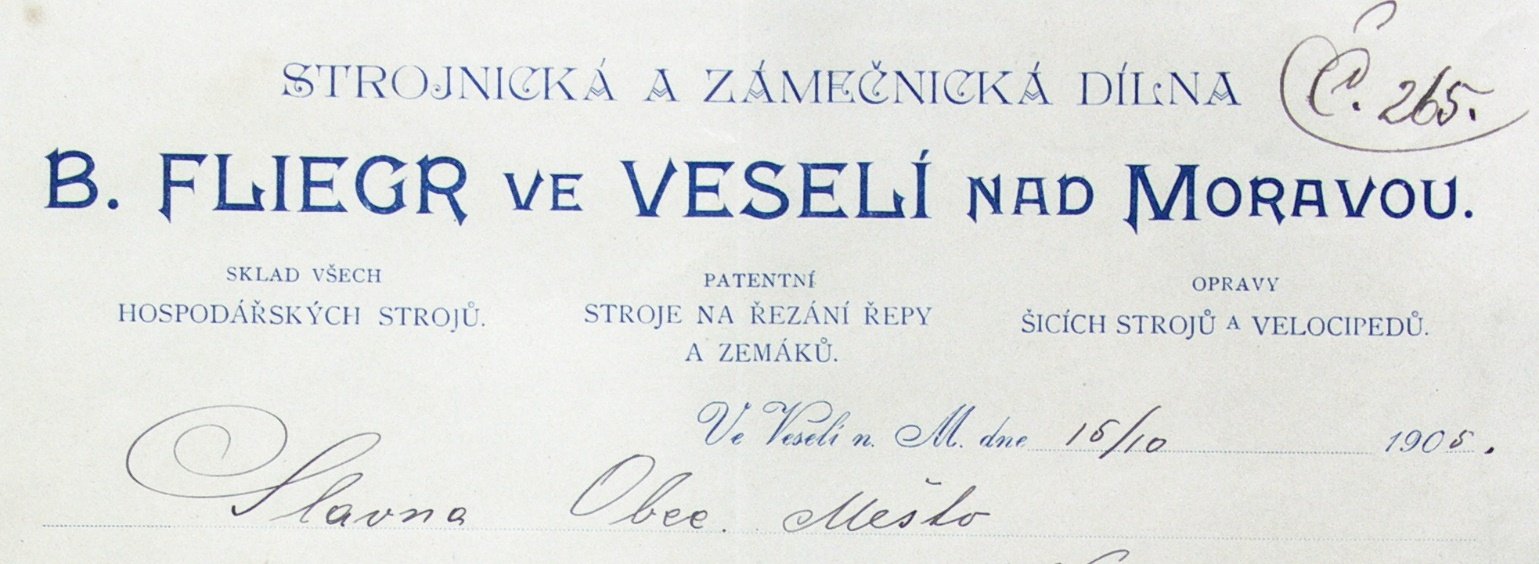 STROJNICKÁ A ZÁMEČNICKÁ DÍLNA
Č. 265.
B. FLIEGR VE VESELÍ NAD MORAVOU.
SKLAD VŠECH
HOSPODÁŘSKÝCH STROJŮ.
PATENTNÍ
STROJE NA ŘEZÁNÍ ŘEPY
A ZEMÁKŮ.
OPRAVY
ŠICÍCH STROJŮ A VELOCIPEDŮ.
Ve Veselí n. M. dne 15/10 1905.
Slavna Obec. Město